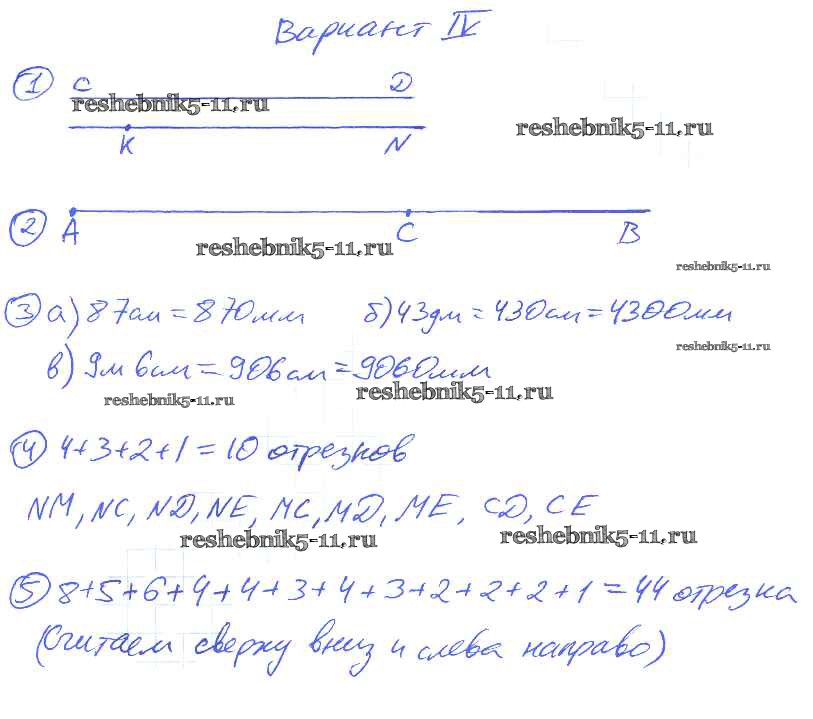 Вариант IV
① C D
reshebnik5-11.ru
reshebnik5-11.ru
K N
② A C B
reshebnik5-11.ru
reshebnik5-11.ru
③ а) 87см = 870мм б) 43дм = 430см = 4300мм
reshebnik5-11.ru
в) 9м 6см = 906см = 9060мм
reshebnik5-11.ru reshebnik5-11.ru
④ 4+3+2+1=10 отрезков
NM, NC, ND, NE, MC, MD, ME, CD, CE
reshebnik5-11.ru reshebnik5-11.ru
⑤ 8+5+6+4+4+3+4+3+2+2+2+1=44 отрезка
(Считаем сверху вниз и слева направо)